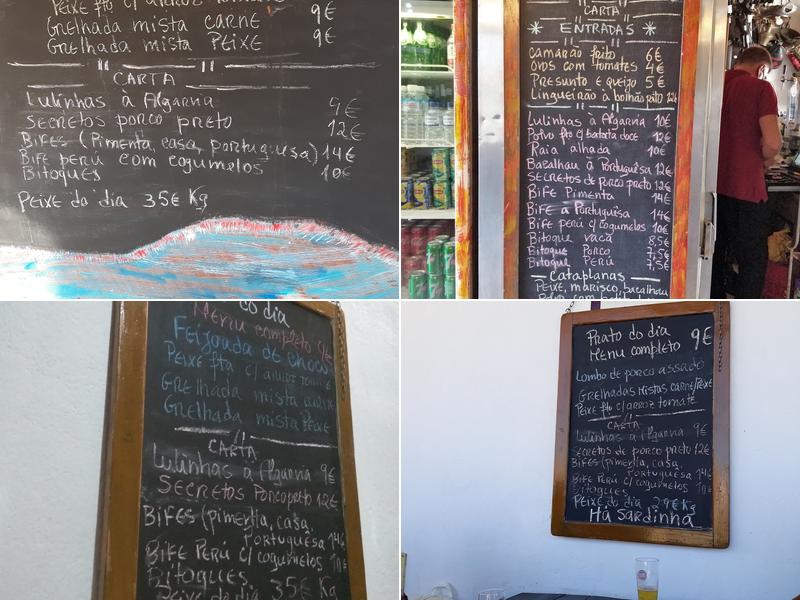 Peixe fto c/arroz tomate 9€
Grelhada mista carne 9€
Grelhada mista Peixe 9€
CARTA
Lulinhas à Algarvia 9€
Secretos porco preto 12€
Bifes (Pimenta, casa, portuguesa) 14€
Bife perú com cogumelos 10€
Bitoques
Peixe do dia 35€ Kg
CARTA
* ENTRADAS *
Camarão frito 6€
Ovos com tomates 4€
Presunto e queijo 5€
Lingueirão à bolhão pato 12€
Lulinhas à Algarvia 10€
Polvo fto c/batata doce 12€
Raia alhada 10€
Bacalhau à Portuguesa 12€
Secretos de porco preto 12€
Bife Pimenta 14€
Bife a Portuguesa 14€
Bife perú c/cogumelos 10€
Bitoque vaca 8,5€
Bitoque Porco 7,5€
Bitoque Perú 7,5€
Cataplanas
Peixe, marisco, bacalhau
do dia
Menu completo 9€
Feijoada de choco
Peixe fto c/arroz tomate
Grelhada mista carne
Grelhada mista Peixe
CARTA
Lulinhas a Algarvia 9€
Secretos Porco preto 12€
Bifes (pimenta, casa,
Portuguesa 14€
Bife Perú c/cogumelos 10€
Bitoques
Peixe do dia 35€ Kg
Prato do dia
Menu completo 9€
Lombo de porco assado
Grelhadas Mistas carne/Peixe
Peixe fto c/arroz tomate
CARTA
Lulinhas a Algarvia 9€
Secretos de porco preto 12€
Bifes (pimenta, casa,
Portuguesa 14€
Bife Perú c/cogumelos 10€
Bitoques
Peixe do dia 29€ Kg
Há Sardinha